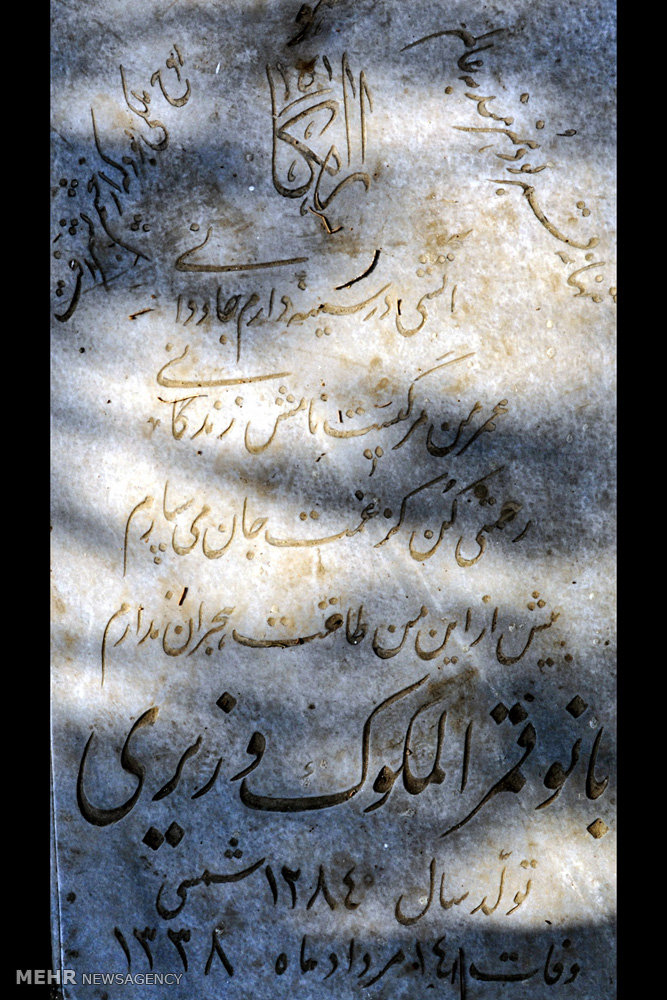 آرامگاه
آتشی در سینه دارم جاودانی
عمر من مرگیست نامش زندگانی
رحمتی کن کز غمت جان می سپارم
بیش از این من طاقت هجران ندارم
بانو قمرالملوک وزیری
تولد سال ۱۲۸۴ شمسی
وفات ۱۴ مرداد ماه ۱۳۳۸
MEHR NEWSAGENCY